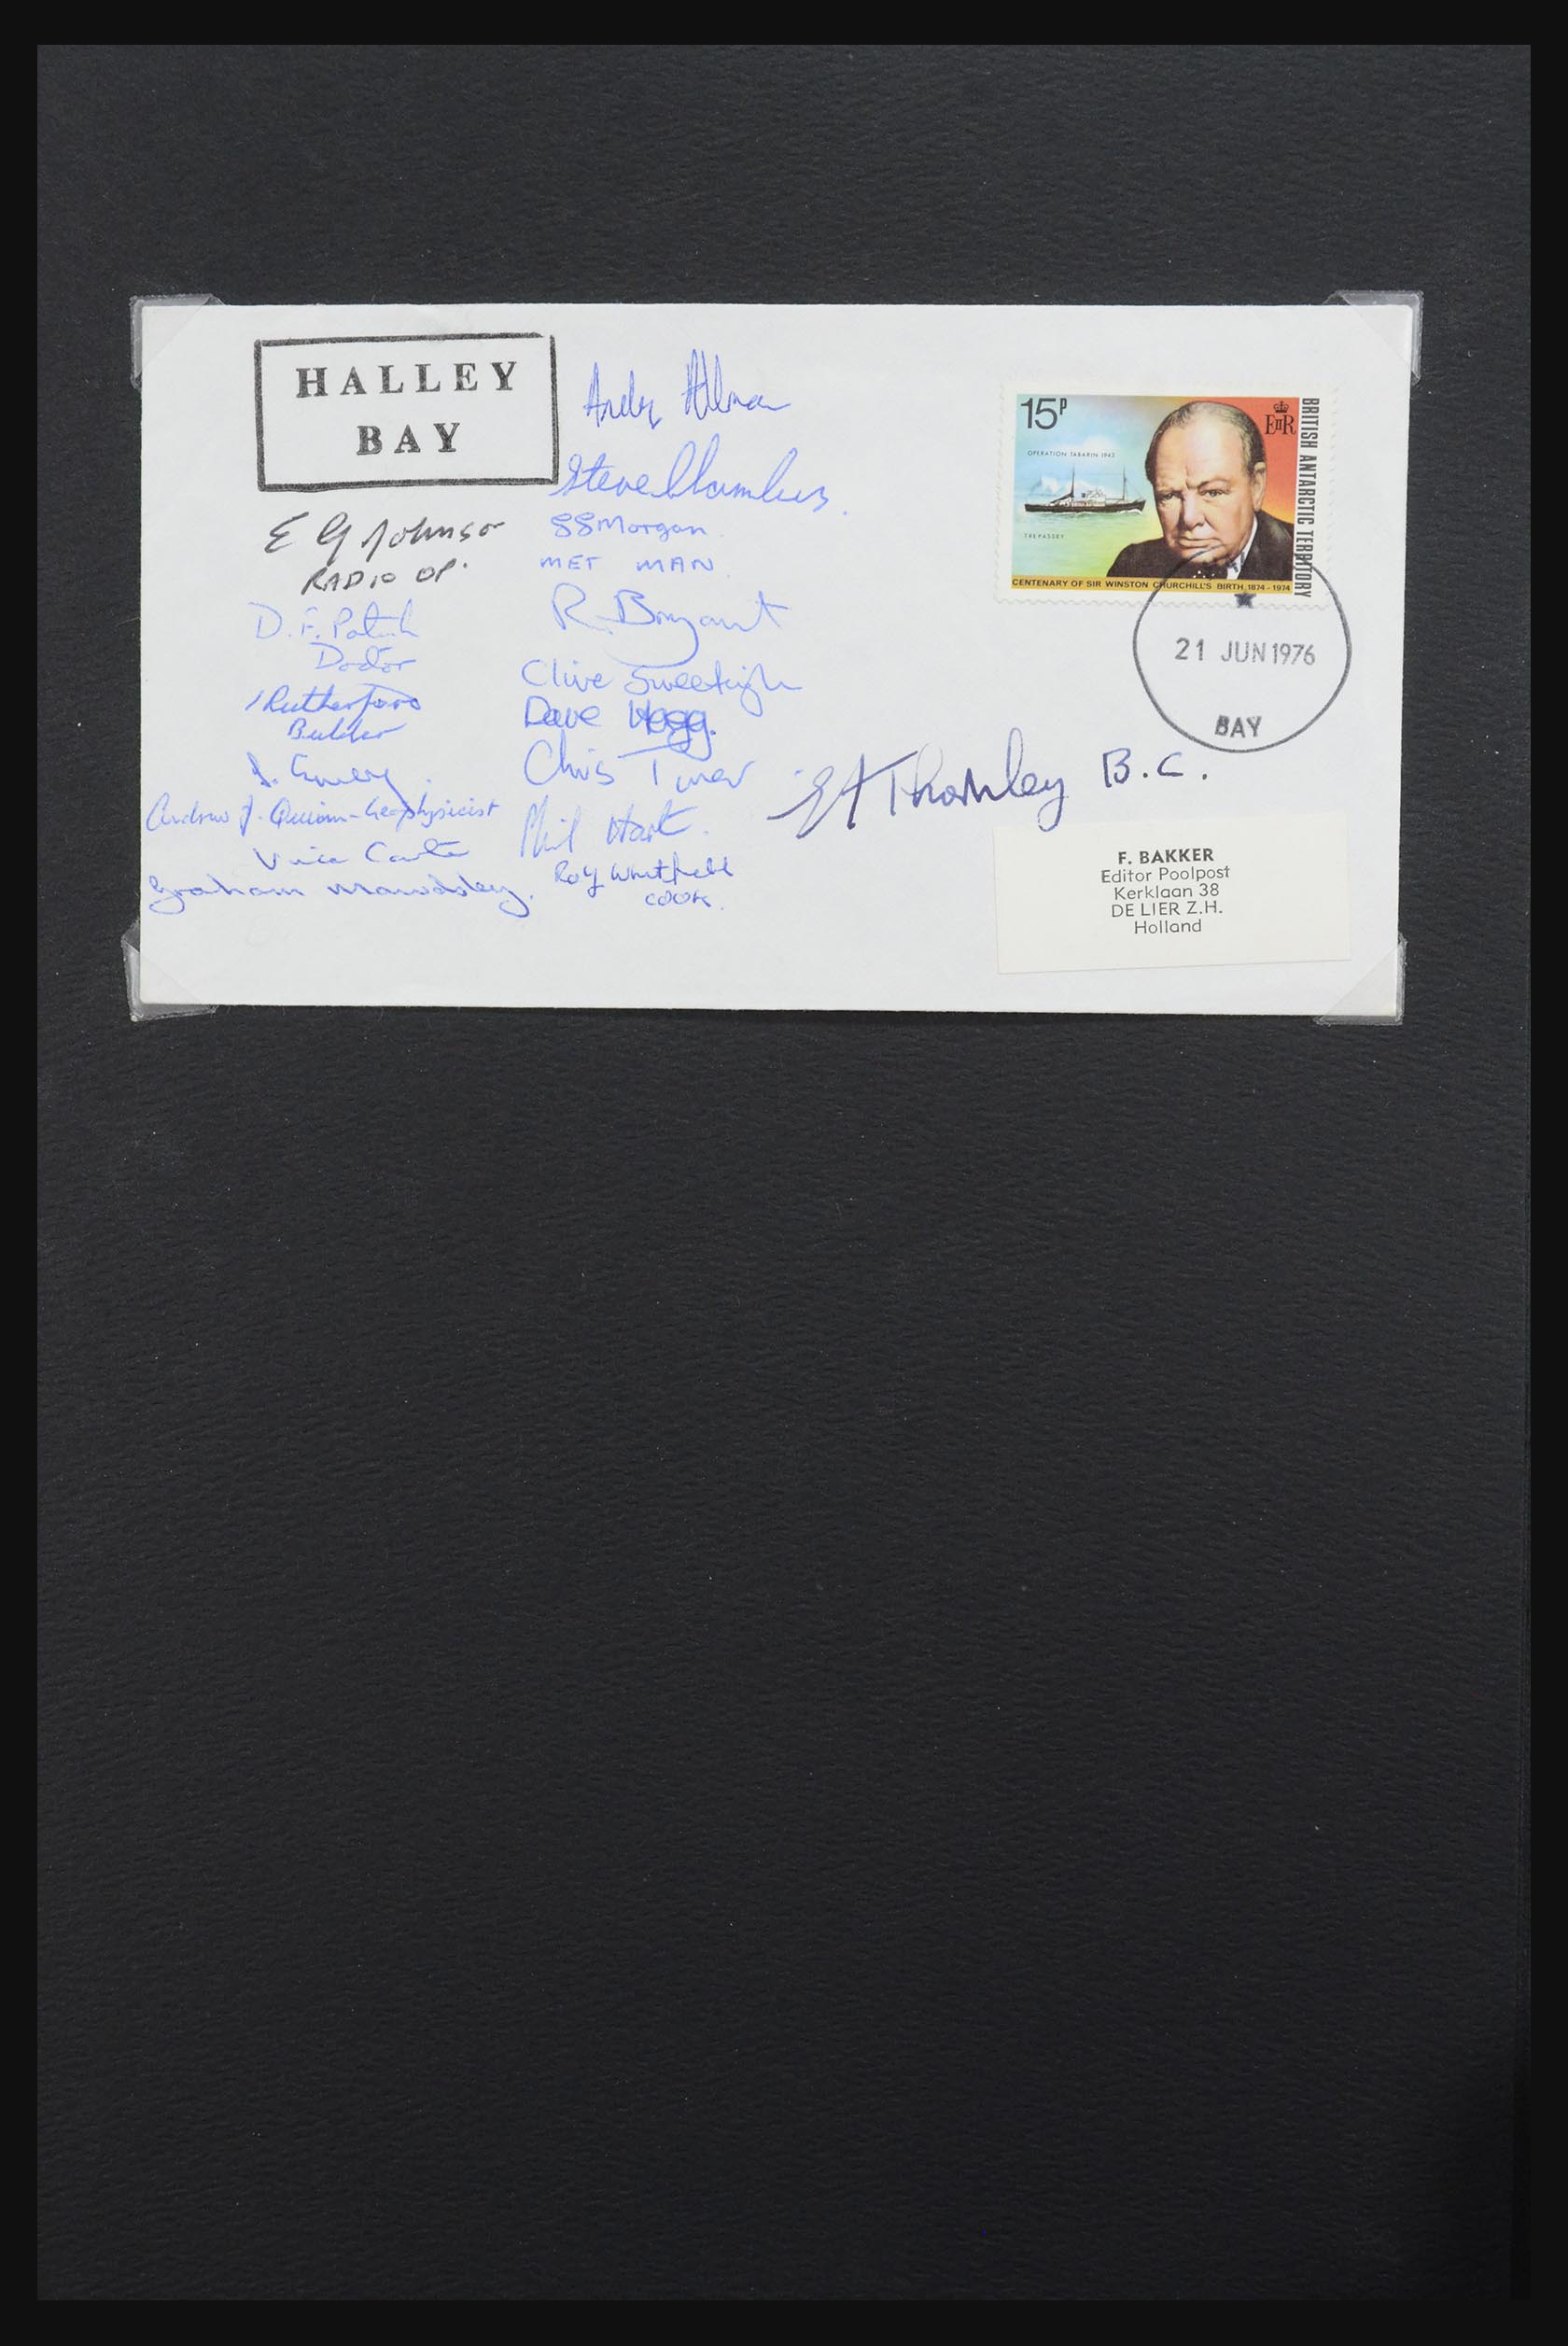 HALLEY
BAY
E G Johnson
RADIO OP.
D. F.
Doctor
Rutherford
Builder
J. Emery.
Andrew J. Quinn - Geophysicist
Vince Carter
Graham Mawdsley.
Andy
Steve Chambers.
SSMorgan
MET MAN
R. Bryant
Clive Sweetingh
Dave Hogg.
Chris Turner
Phil Hart.
Roy Whitfield
COOK.
Thornley B.C.
15P
EIIR
BRITISH ANTARCTIC TERRITORY
OPERATION TABARIN 1943
TREPASSEY
CENTENARY OF SIR WINSTON CHURCHILL'S BIRTH 1874-1974
21 JUN 1976
BAY
F. BAKKER
Editor Poolpost
Kerklaan 38
DE LIER Z.H.
Holland